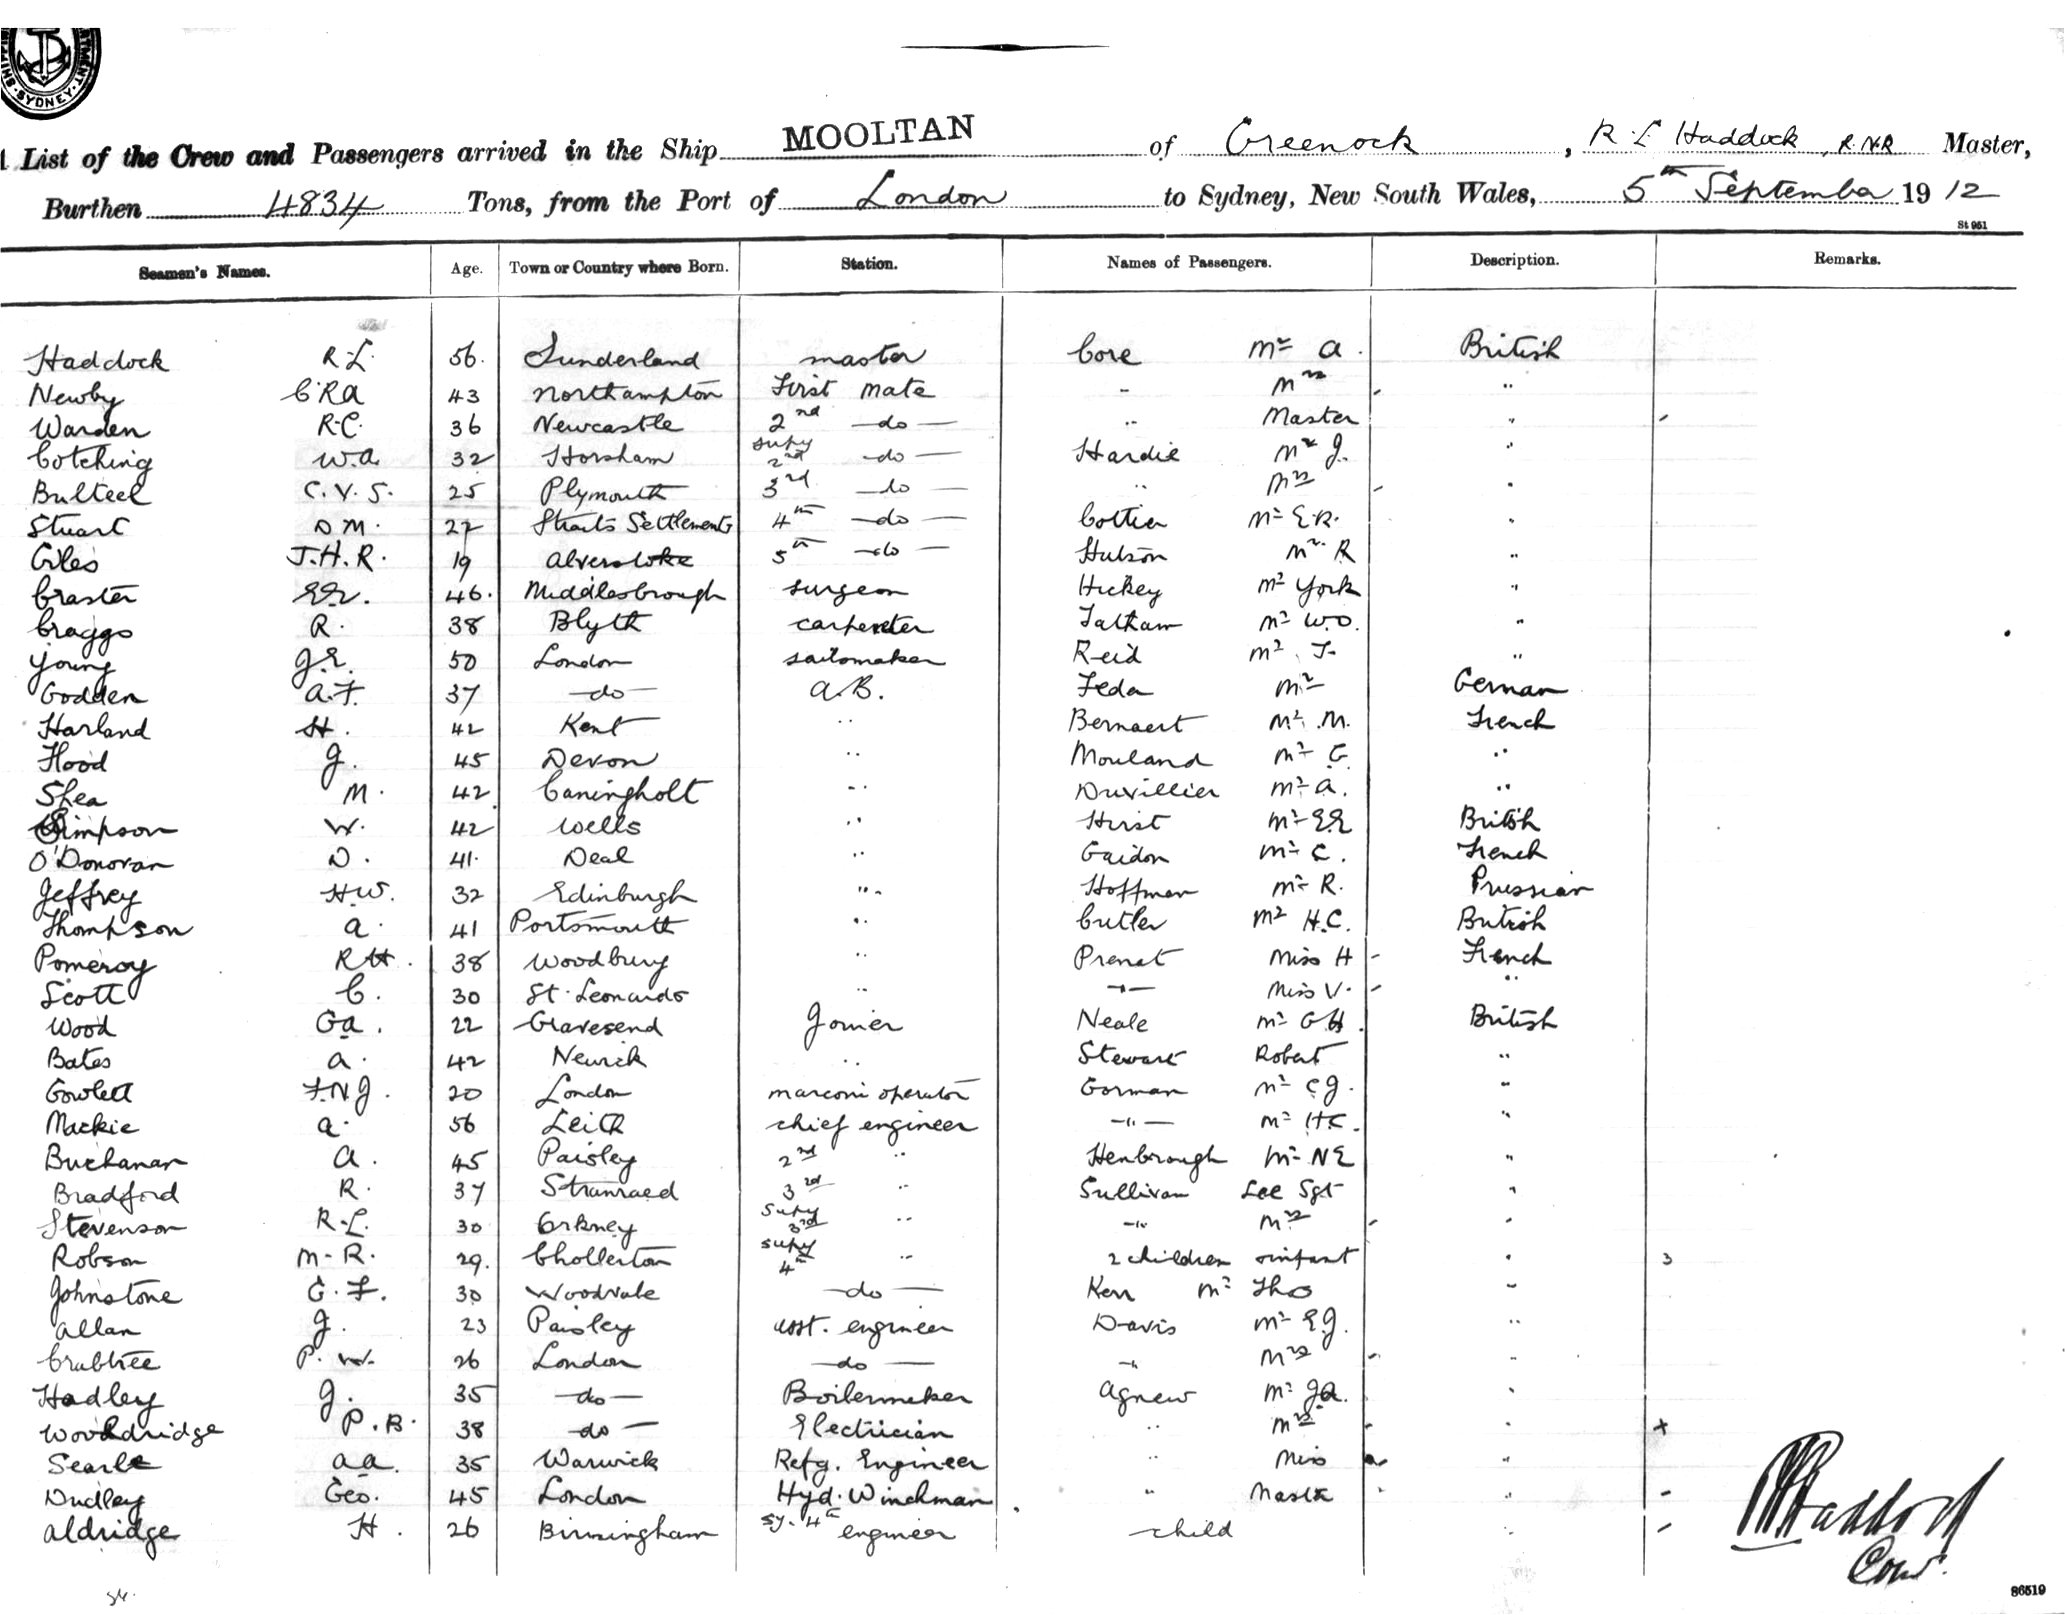 SHIPPING DEPARTMENT SYDNEY
List of the Crew and Passengers arrived in the Ship MOOLTAN of Greenock, R L Haddock, R.N.R Master,
Burthen 4834 Tons, from the Port of London to Sydney, New South Wales, 5th September 1912
St 951
Seamen's Names. Age. Town or Country where Born. Station. Names of Passengers. Description. Remarks.
Haddock R.L. 56. Sunderland master Core Mr A. British
Newby C.R.A 43 Northampton First Mate - Mrs - "
Warden R.C. 36 Newcastle 2nd —do— " Master " -
Cotching W.A. 32 Horsham supy 2nd —do— Hardie Mr J. "
Bulteel C.V.S. 25 Plymouth 3rd —do— " Mrs - "
Stuart D M. 27 Straits Settlements 4th —do— Cottier Mr E.R. "
Giles J.H.R. 19 Alverstoke 5th —do— Hulson Mr R "
Craster 46. Middlesbrough surgeon Hickey Mr York "
Craggs R. 38 Blyth carpenter Tatham Mr W.O. "
Young J.E. 50 London sailomaker Reid Mr J. "
Godden A.F. 37 —do— A.B. Feda Mr German
Harland H. 42 Kent " Bernaert Mr. M. French
Hood J. 45 Devon " Mouland Mr G "
Shea M. 42 Caningholt " Duvillier Mr A. "
Simpson W. 42 Wells " Hirst Mr E.E British
O'Donovan D. 41. Deal " Gaidon Mr C. French
Jeffrey H.W. 32 Edinburgh " Hoffman Mr R. Prussian
Thompson A. 41 Portsmouth " Cutler Mr H.C. British
Pomeroy R H. 38 Woodbury " Prenat Miss H - French
Scott C. 30 St. Leonards " —"— Miss V. - "
Wood G.A. 22 Gravesend Joiner Neale Mr G H. British
Bates A. 42 Newick " Stewart Robert "
Gowlett F.N.J. 20 London marconi operator Gorman Mr C J. "
Mackie A. 56 Leith chief engineer —"— Mr H C. "
Buchanan A. 45 Paisley 2nd " Henbrough Mr N E "
Bradford R. 37 Stranraed 3rd " Sullivan Lee Sgt "
Stevenson R.L. 30 Orkney supy 3rd " —"— Mrs - "
Robson M.R. 29. Chollerton supy 4th " 2 children infant " 3
Johnstone G.F. 30 Woodvale —do— Kerr Mr Thos "
Allan J. 23 Paisley asst. engineer Davis Mr E.J. "
Crabtree P.W. 26 London —do— " Mrs - "
Hadley J. 35 —do— Boilermaker Agnew Mr J.A. "
Wooldridge P.B. 38 —do— Electrician " Mrs - " +
Searle A.A. 35 Warwick Refg. Engineer " Miss - "
Dudley Geo. 45 London Hyd. Winchman " Master - " -
Aldridge H. 26 Birmingham sy. 4th engineer child " -
R Haddock
Com.
86519